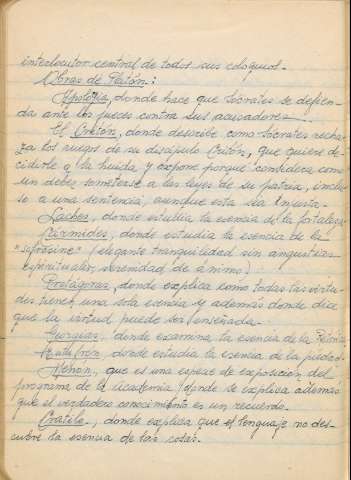 interlocutor central de todos sus coloquios.-
Obras de Platón:
Apología, donde hace que Sócrates se defien-
da ante los jueces contra sus acusadores.-
El Critón, donde describe como Sócrates recha-
za los ruegos de su discípulo Critón, que quiere de-
cidirle a la huida, y expone porqué considera como
un deber someterse a las leyes de su patria, inclu-
so a una sentencia, aunque esta sea injusta.-
Laches, donde estudia la esencia de la fortaleza.
Cármides, donde estudia la esencia de la
"sofrosine" (elegante tranquilidad sin angustias
espirituales, serenidad de ánimo).
Protágoras, donde explica como todas las virtu-
des tienen una sola esencia y además donde dice
que la virtud puede ser enseñada.-
Georgias, donde examina la esencia de la Retórica
donde estudia la esencia de la piedad.-
Menon, que es una especie de exposición del
programa de la Academia, donde se explica además
que el verdadero conocimiento es un recuerdo.
Cratilo, donde explica que el lenguaje no des-
cubre la esencia de las cosas.-